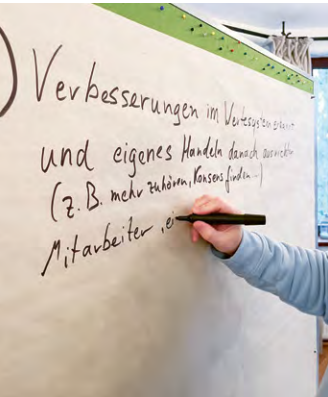 Verbesserungen im Wertesystem erkannt
und eigenes Handeln danach ausrichten
(z.B. mehr zuhören, Konsens finden...)
Mitarbeiter, ei